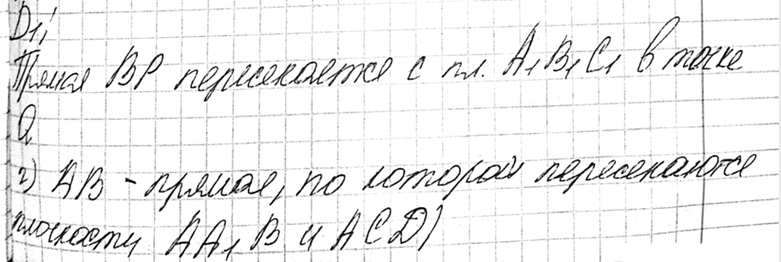 D₁;
Прямая BP пересекается с пл. A₁B₁C₁ в точке
Q
г) AB - прямая, по которой пересекаются
плоскости AA₁B и ACD)